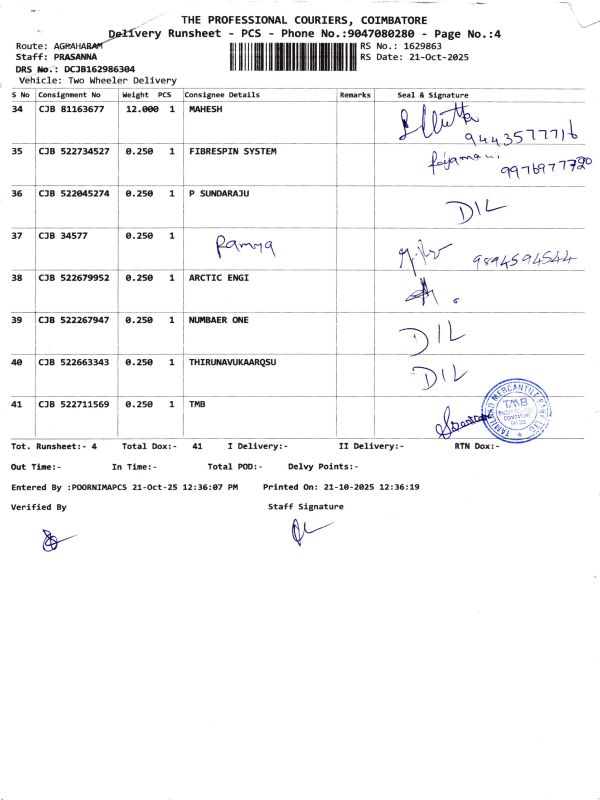 THE PROFESSIONAL COURIERS, COIMBATORE
Delivery Runsheet - PCS - Phone No.:9047080280 - Page No.:4
Route: AGHAHARAM RS No.: 1629863
Staff: PRASANNA RS Date: 21-Oct-2025
DRS No.: DCJB162986304
Vehicle: Two Wheeler Delivery
S No Consignment No Weight PCS Consignee Details Remarks Seal & Signature
34 CJB 81163677 12.000 1 MAHESH
9443577716
35 CJB 522734527 0.250 1 FIBRESPIN SYSTEM
9976977720
36 CJB 522045274 0.250 1 P SUNDARAJU DIL
37 CJB 34577 0.250 1 Ramya 9894594544
38 CJB 522679952 0.250 1 ARCTIC ENGI
39 CJB 522267947 0.250 1 NUMBAER ONE DIL
40 CJB 522663343 0.250 1 THIRUNAVUKAARQSU DIL
41 CJB 522711569 0.250 1 TMB
TAMILNAD MERCANTILE BANK LTD
TMB
COIMBATORE
Tot. Runsheet:- 4 Total Dox:- 41 I Delivery:- II Delivery:- RTN Dox:-
Out Time:- In Time:- Total POD:- Delvy Points:-
Entered By :POORNIMAPCS 21-Oct-25 12:36:07 PM Printed On: 21-10-2025 12:36:19
Verified By Staff Signature